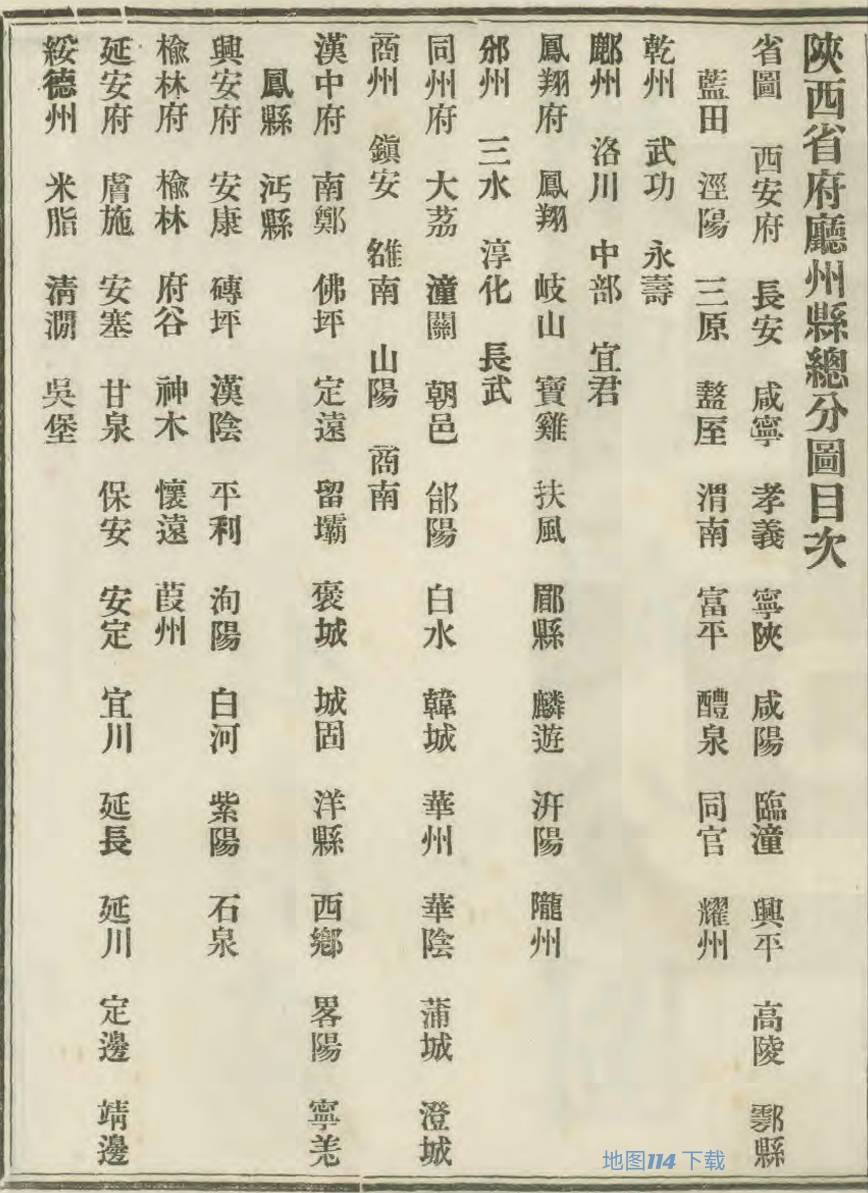 陝西省府廳州縣總分圖目次
省圖 西安府 長安 咸寧 孝義 寧陝 咸陽 臨潼 興平 高陵 鄠縣
藍田 涇陽 三原 盩厔 渭南 富平 醴泉 同官 耀州
乾州 武功 永壽
鄜州 洛川 中部 宜君
鳳翔府 鳳翔 岐山 寶雞 扶風 郿縣 麟遊 汧陽 隴州
邠州 三水 淳化 長武
同州府 大荔 潼關 朝邑 郃陽 白水 韓城 華州 華陰 蒲城 澄城
商州 鎭安 雒南 山陽 商南
漢中府 南鄭 佛坪 定遠 留壩 褒城 城固 洋縣 西鄉 畧陽 寧羌
鳳縣 沔縣
興安府 安康 磚坪 漢陰 平利 洵陽 白河 紫陽 石泉
榆林府 榆林 府谷 神木 懷遠 葭州
延安府 膚施 安塞 甘泉 保安 安定 宜川 延長 延川 定邊 靖邊
綏德州 米脂 淸澗 吳堡
地图114 下载